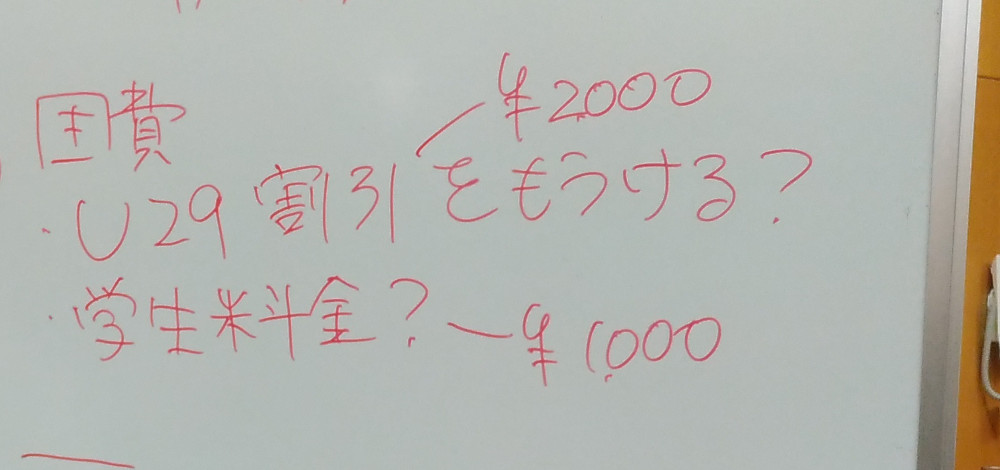 ¥2,000
国費
・U29 割引をもうける?
・学生料金? ー¥1,000